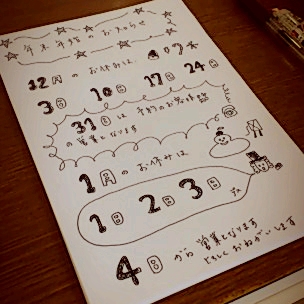 年末年始のお知らせ
12月のお休みは
3日 10日 17日 24日
31日は予約のお客様
の営業となります
1月のお休みは
1日 2日 3日
4日から営業となります
よろしくおねがいします